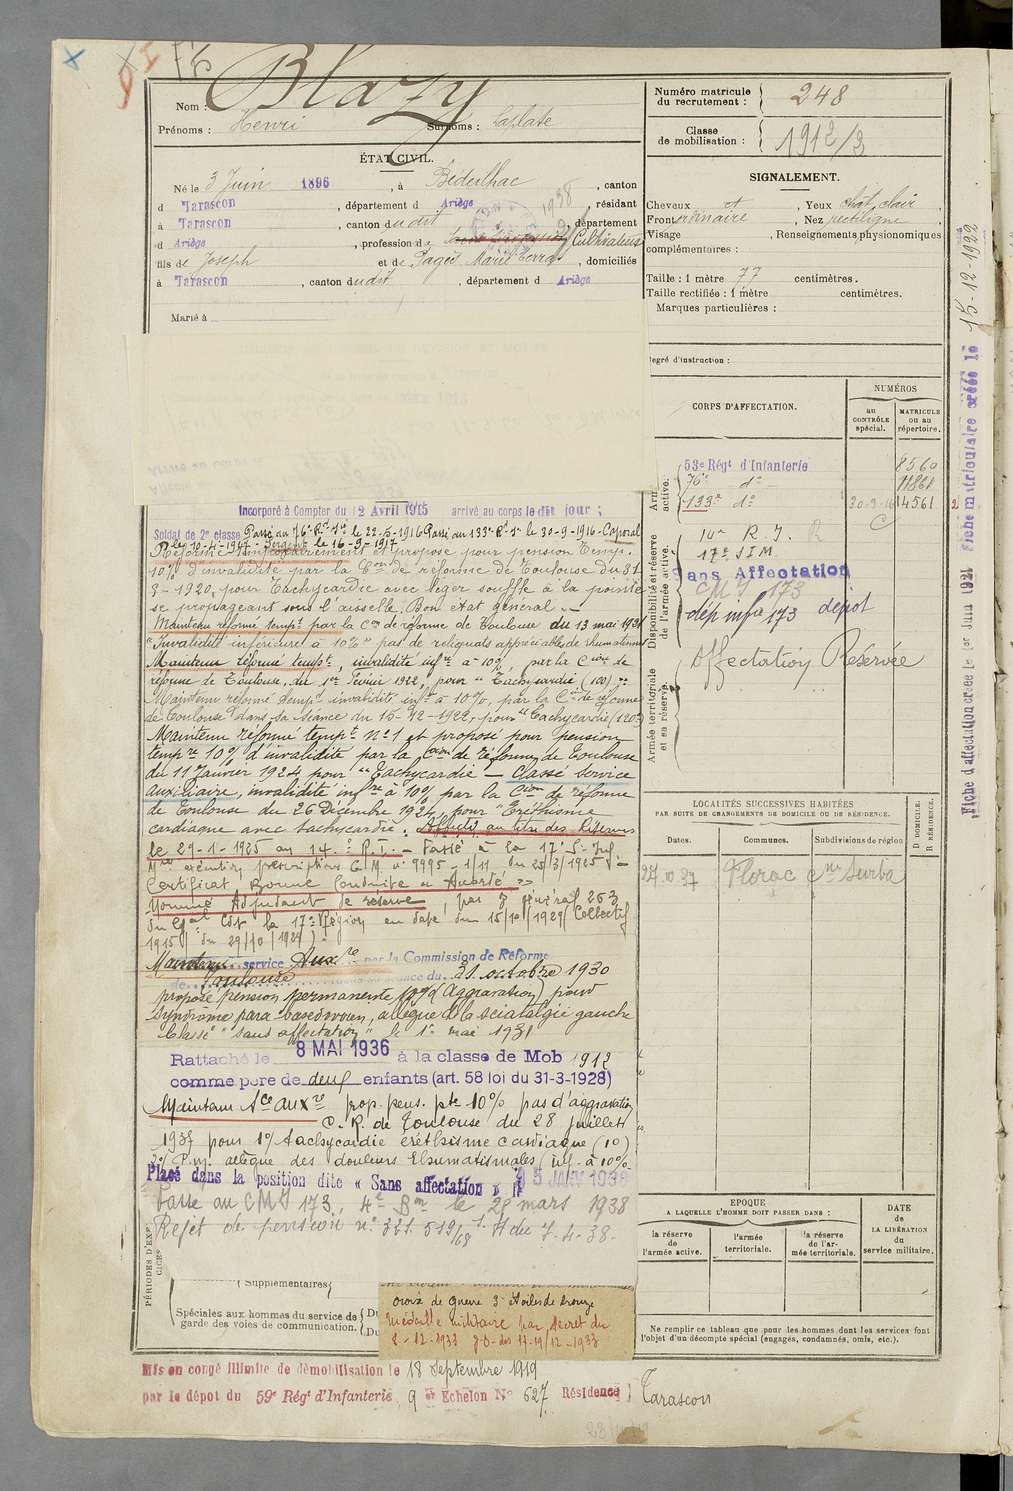 Nom : Blazy
Prénoms : Henri Surnoms : Laplate
ÉTAT CIVIL.
Né le 3 Juin 1896, à Bédeilhac, canton
d Tarascon, département d Ariège, résidant
à Tarascon, canton du dit, département
d Ariège, profession d Cultivateur
fils de Joseph et de Pagès Marie, domiciliés
à Tarascon, canton du dit, département d Ariège
Marié à
Numéro matricule du recrutement : 248
Classe de mobilisation : 1912/3
SIGNALEMENT.
Cheveux Yeux chat. clair
Front ordinaire, Nez rectiligne
Visage, Renseignements physionomiques
complémentaires :
Taille : 1 mètre 77 centimètres.
Taille rectifiée : 1 mètre centimètres.
Marques particulières :
degré d'instruction :
CORPS D'AFFECTATION.
NUMÉROS
au CONTRÔLE spécial.
MATRICULE ou au répertoire.
53e Régt d'Infanterie 8560
76e do 11861
133e do 30-9-16 14561
14e R. I.
17e S I M.
Sans Affectation
C M I 173
dép infie 173 dépot
Affectation Réservée
Disponibilité et réserve de l'armée active.
Armée territoriale et sa réserve.
Incorporé à Compter du 12 Avril 1915 arrivé au corps le dit jour ;
Soldat de 2e classe Passé au 76e Rt Ie le 22-5-1916 Passé au 133e Rt Ie le 30-9-1916 - Caporal
le 10-4-1917 - Sergent le 16-9-1917
Réformé temporairement et proposé pour pension temp.
10% d'invalidité par la Con de réforme de Toulouse du 31
3-1920, pour Tachycardie avec léger souffle à la pointe
se propageant sous l'aisselle. Bon état général.
Maintenu réformé tempt par la Con de réforme de Toulouse du 13 mai 1921
"Invalidité inférieure à 10%" pas de reliquats appréciables de rhumatismes
Maintenu réformé tempt, invalidité infre à 10%, par la Cion de
réforme de Toulouse, du 1er Février 1922, pour "Tachycardie (100)"
Maintenu réformé tempt invalidité infre à 10%, par la Cion de réforme
de Toulouse dans sa séance du 15-12-1922, pour "Tachycardie (120)"
Maintenu réformé tempt no 1 et proposé pour pension
tempre 10% d'invalidité par la Cion de réforme de Toulouse
du 11 Janvier 1924 pour "Tachycardie - Classé service
auxiliaire, invalidité infre à 10% par la Cion de réforme
de Toulouse du 26 Décembre 1924, pour "Eréthisme
cardiaque avec tachycardie. Affecté au titre des Réserves
le 29-1-1925 au 14e R.I. - Passé à la 17e S. Inf
exécution prescriptions C.M. no 9995-1/11 du 25/3/1925
Certificat Bonne Conduite "Accordé"
Nommé Adjudant de réserve, par général 263
du Gal Cdt la 17e Région en date du 15/10/1929 (Collectif
1915 du 29/10/1929)
Maintenu service Auxre par la Commission de Réforme
de Toulouse dans sa séance du 31 octobre 1930
proposé pension permanente 10% (aggravation) pour
syndrome para-basedowien, allègue de la sciatalgie gauche
Classé "sans affectation" le 1er mai 1931
Rattaché le 8 MAI 1936 à la classe de Mob 1912
comme père de deux enfants (art. 58 loi du 31-3-1928)
Maintenu Sce auxre prop. pens. pte 10% pas d'aggravation
C. R. de Toulouse du 28 juillet
1937 pour 1o tachycardie éréthisme cardiaque (10)
2o P.m. allègue des douleurs rhumatismales (inf. à 10%
Placé dans la position dite « Sans affectation » le 15 JANV 1938
Passe au C M I 173, 4e Bon le 28 mars 1938
Rejet de pension no 321.519/68 du 7-4-38-
LOCALITÉS SUCCESSIVES HABITÉES
PAR SUITE DE CHANGEMENTS DE DOMICILE OU DE RÉSIDENCE.
Dates. Communes. Subdivisions de région D. DOMICILE. R. RÉSIDENCE.
27.10.37 Florac cne Surba
EPOQUE
A LAQUELLE L'HOMME DOIT PASSER DANS :
la réserve de l'armée active.
l'armée territoriale.
la réserve de l'armée territoriale.
DATE de LA LIBÉRATION du service militaire.
Ne remplir ce tableau que pour les hommes dont les services font
l'objet d'un décompte spécial (engagés, condamnés, omis, etc.).
Supplémentaires
Spéciales aux hommes du service de
garde des voies de communication.
Du
Du
croix de guerre 3 étoiles de bronze
Médaille militaire par décret du
8-12-1933 J.O. des 17-19/12-1933
Mis en congé illimité de démobilisation le 18 Septembre 1919
par le dépôt du 59e Régt d'Infanterie 9 er Echelon No 627 Résidence Tarascon
Fiche d'affectation créée le 1er Juin 1921
Fiche matriculaire créée le 15-12-1922